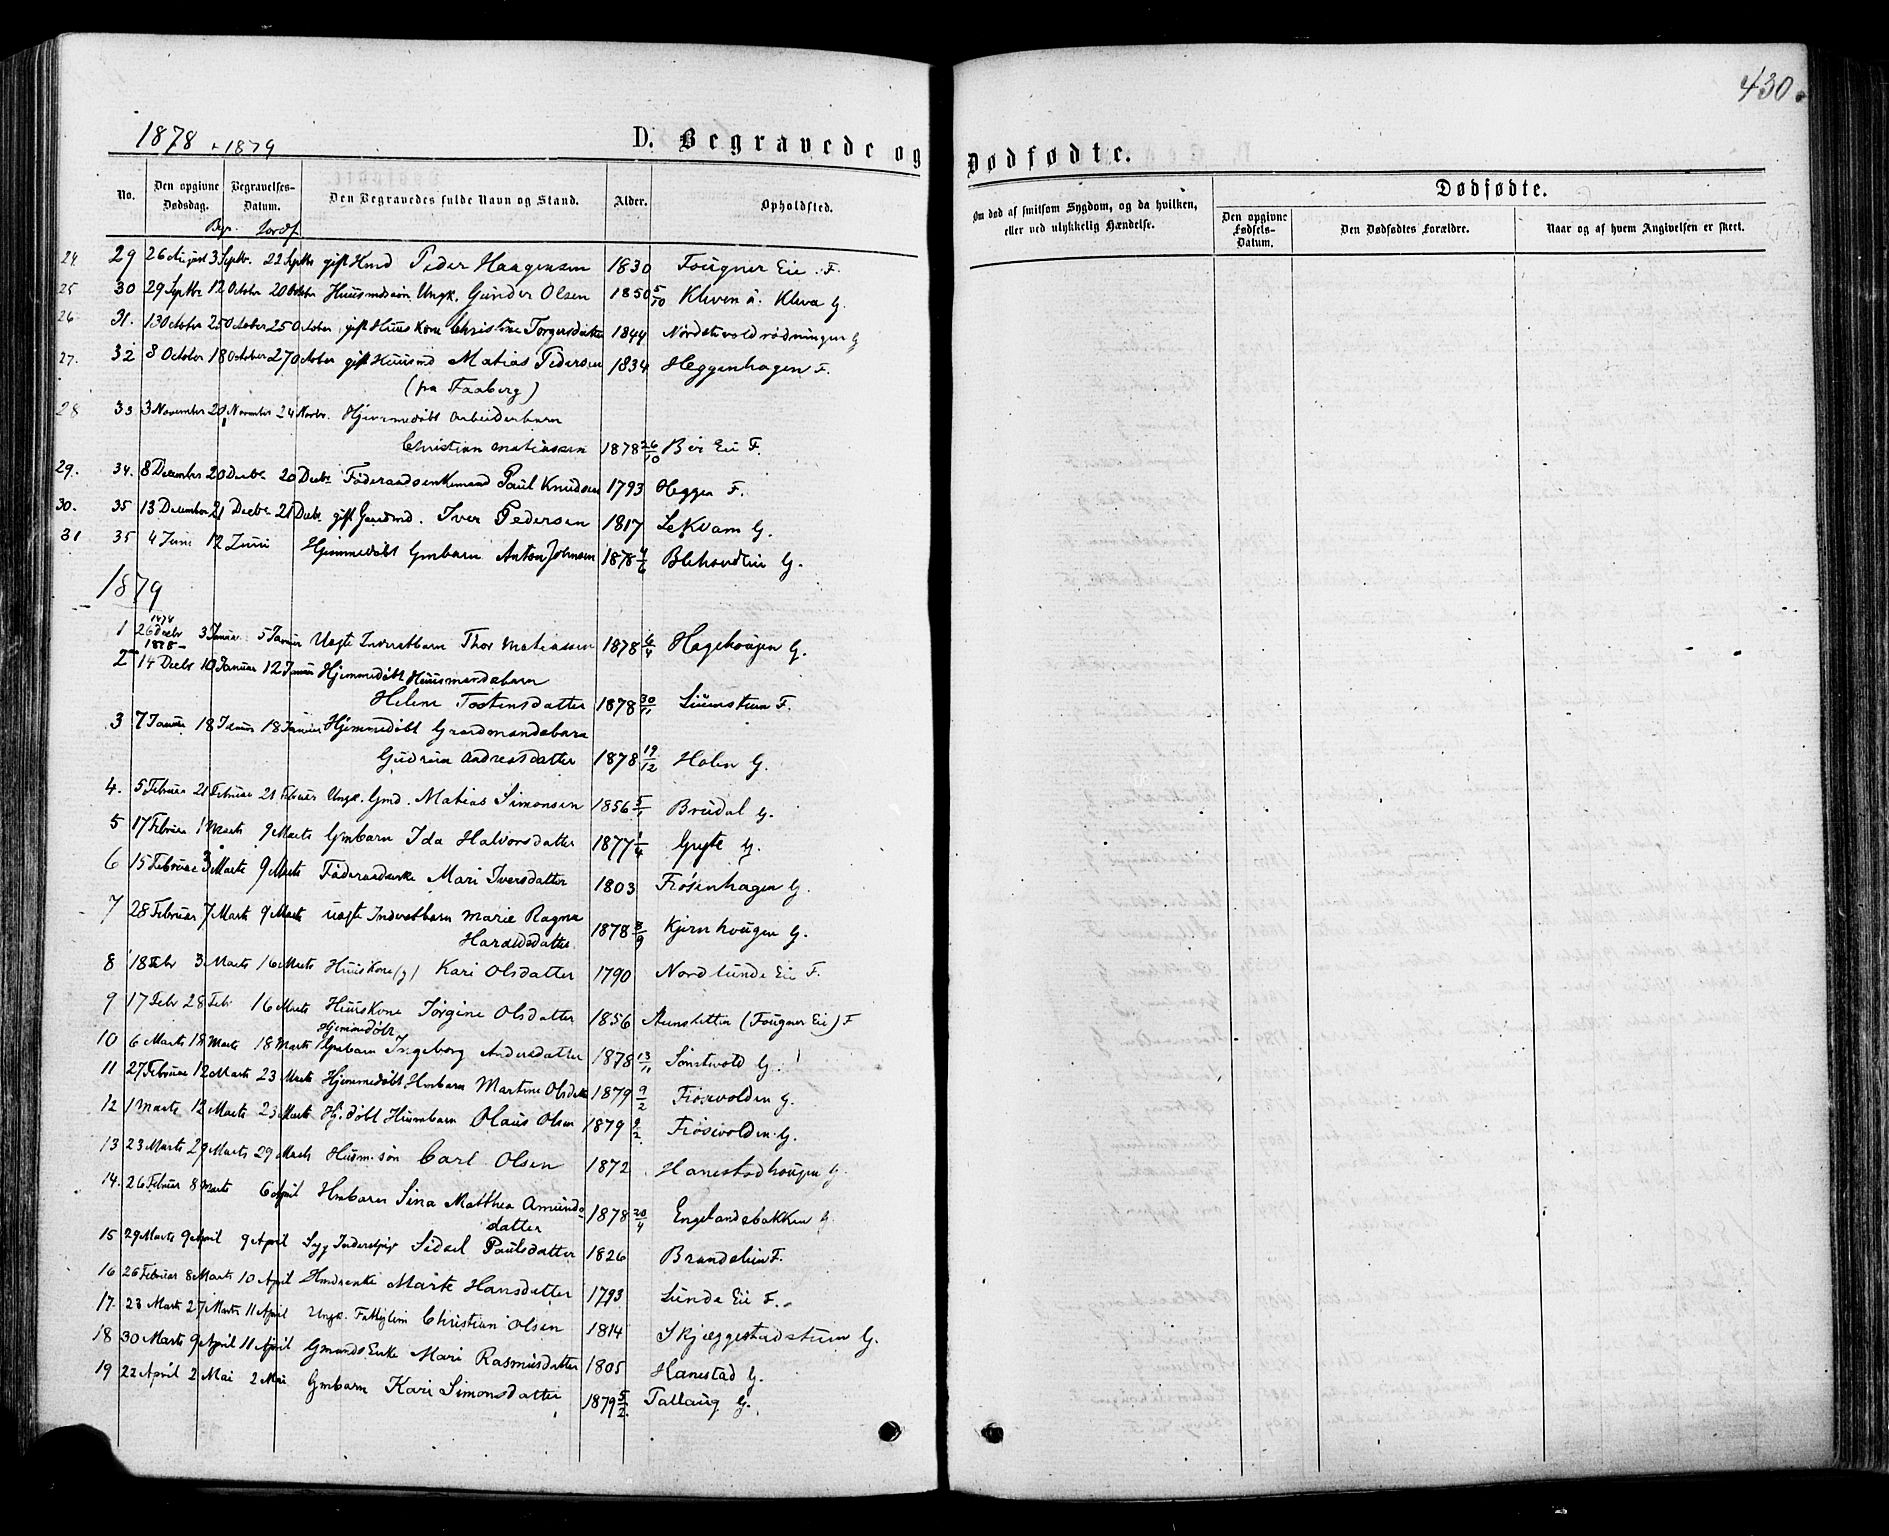 430.
1878 + 1879
D. Begravede og Dødfødte.
No. Den opgivne Dødsdag. Begravelses-Datum. Den Begravedes fulde Navn og Stand. Alder. Opholdsted. Om død af smitsom Sygdom, og da hvilken, eller ved ulykkelig Hændelse. Dødfødte.
Den opgivne Fødsels-Datum. Den Dødfødtes Forældre. Naar og af hvem Angivelsen er skeet.
Begr. Jordf.
24. 29 26 August 3 Septbr. 22 Septbr gift Hmd Peder Haagensen 1830 Fougner Eie F.
25 30 29 Septbr 12 October 20 Octobr Huusmdssøn Ungk. Gunder Olsen 1850 5/10 Kleven u. Kleva G.
26 31. 13 October 25 October 25 October gift Huuskone Christine Torgersdatter 1844 Nordstevoldrødningen G
27. 32 8 October 18 October 27 October gift Huusmd Matias Pedersen 1834 Heggenhagen F.
(fra Faaberg)
28 33 3 November 20 November 24 Novbr. Hjemmedøbt Arbeiderbarn
Christian Matiassen 1878 26/10 Bøe Eie F.
29. 34. 8 December 20 Decbr 20 Decbr Føderaadsenkemand Paul Knudsen 1793 Heggen F.
30. 35 13 December 21 Decbr 21 Decbr. gift Gaardmd. Iver Pedersen 1817 Lekvam G.
31 35 4 Juni 12 Juni Hjemmedøbt Gmbarn Anton Johnsen 1878 4/6 Blekastlien G.
1879
1 1878 26 Decbr 3 Januar 5 Januar Uægte Inderstbarn Thor Matiassen 1878 6/4 Hagehougen G.
2 1878 14 Decbr 10 Januar 12 Januar Hjemmedøbt Huusmandsbarn
Helene Tostensdatter 1878 30/11 Liumstuen F.
3 7 Januar 18 Januar 18 Januar Hjemmedøbt Gaardmandsbarn
Gudrun Andreasdatter 1878 19/12 Holen G.
4. 5 Februar 21 Februar 21 Februar Ungk. Gmd. Matias Simonsen 1856 5/1 Brudal G.
5 17 Februar 1 Marts 9 Marts Gmbarn Ida Halvorsdatter 1877 1/4 Gryte G.
6 15 Februar 3 Marts 9 Marts Føderaadsenke Mari Iversdatter 1803 Frøsenhagen G.
7 28 Februar 7 Marts 9 Marts uægte Inderstbarn Marie Ragna
Haraldsdatter 1878 3/9 Kjernhougen G.
8 18 Febr 3 Marts 16 Marts Huuskone (g) Kari Olsdatter 1790 Nordlunde Eie F.
9 17 Febr 28 Febr 16 Marts Huuskone Jørgine Olsdatter 1856 Aunstetten (Fougner Eie) F
Hjemmedøbt
10 6 Marts 18 Marts 18 Marts Gmbarn Ingeborg Andersdatter 1878 13/11 Sønstevold G.
11 27 Februar 12 Marts 23 Marts Hjemmedøbt Hmbarn Martine Olsdatter 1879 9/2 Frøsevolden G.
12 1 Marts 12 Marts 23 Marts Hj. døbt Husmbarn Olaus Olsen 1879 9/2. Frøsevolden G.
13 23 Marts 29 Marts 29 Marts Husm. søn Carl Olsen 1872 Hanestadhougen G.
14. 26 Februar 8 Marts 6 April Hmbarn Sina Matthea Amunds
datter 1878 20/4 Engelandsbakken G.
15 29 Marts 9 April 9 April Syg Inderstpige Sidsel Paulsdatter 1826 Brandslien F.
16 26 Februar 8 Marts 10 April Hmdsenke Marte Hansdatter 1793 Lunde Eie F.
17. 23 Marts 27 Marts 11 April Ungk. Fattiglem Christian Olsen 1814 Skjæggestadstuen G.
18 30 Marts 9 April 11 April Gmands Enke Mari Rasmusdatter 1805 Hanestad G.
19 22 April 2 Mai 2 Mai Gmbarn Kari Simonsdatter 1879 5/2. Tallaug G.